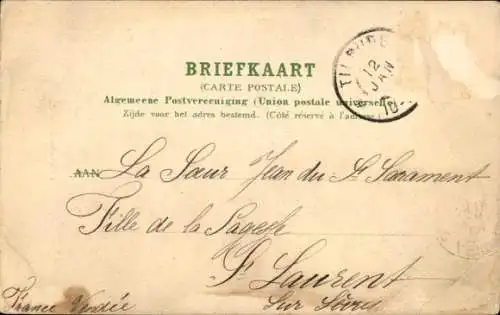 BRIEFKAART
(CARTE POSTALE)
Algemeene Postvereeniging (Union postale universelle)
Zijde voor het adres bestemd. (Côté réservé à l'adresse)
TILBURG
12
JAN
AAN La Sœur Jean du St Sacrament
Fille de la Sagesse
St Laurent
Sur Sèvre
France Vendée